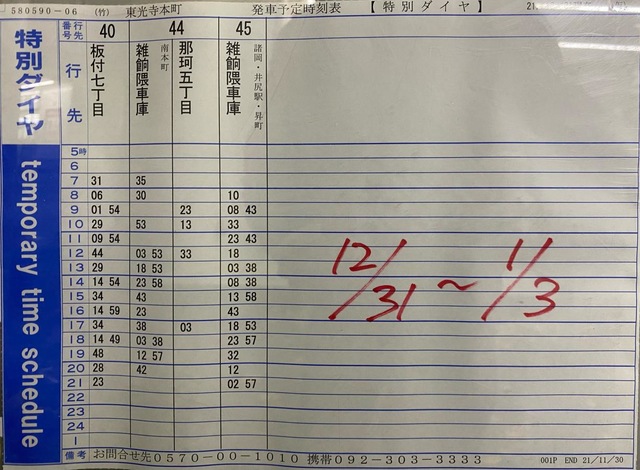 580590-06 (竹) 東光寺本町 発車予定時刻表 【特別ダイヤ】
特別ダイヤ temporary time schedule
行先番号 40 44 45
行先 板付七丁目 雑餉隈車庫 南本町 那珂五丁目 雑餉隈車庫 諸岡・井尻駅・昇町
5時
6
7 31 35
8 06 30 10
9 01 54 23 08 43
10 29 53 13 33
11 09 54 23 43
12 44 03 53 33 18
13 29 18 53 03 38
14 14 54 23 58 08 38
15 34 43 13 58
16 14 59 23 43
17 34 38 03 18 53
18 14 49 03 38 23 57
19 48 12 57 32
20 28 42 12
21 23 02 57
22
23
24
1
12/31~1/3
備考 お問合せ先0570-00-1010 携帯092-303-3333 001P END 21/11/30